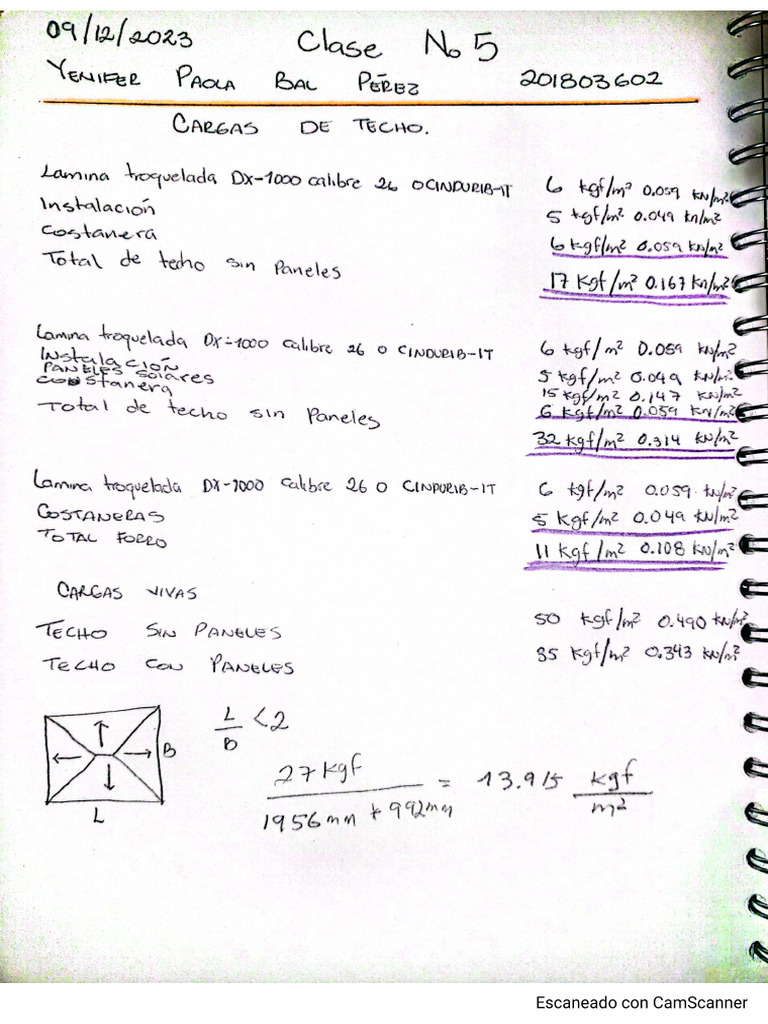 09/12/2023 Clase No 5
YENIFER PAOLA BAL PÉREZ 201803602
CARGAS DE TECHO.
Lamina troquelada DX-1000 calibre 26 o CINDURIB-IT 6 kgf/m² 0.059 kN/m²
Instalación 5 kgf/m² 0.049 kN/m²
Costanera 6 kgf/m² 0.059 kN/m²
Total de techo sin Paneles 17 Kgf/m² 0.167 kN/m²
Lamina troquelada DX-1000 calibre 26 o CINDURIB-IT 6 kgf/m² 0.059 kN/m²
Instalación 5 kgf/m² 0.049 kN/m²
PANELES SOLARES 15 kgf/m² 0.147 kN/m²
Costanera 6 kgf/m² 0.059 kN/m²
Total de techo sin Paneles 32 kgf/m² 0.314 kN/m²
Lamina troquelada DX-1000 calibre 26 o CINDURIB-IT 6 kgf/m² 0.059 kN/m²
COSTANERAS 5 Kgf/m² 0.049 kN/m²
TOTAL FORRO 11 kgf/m² 0.108 kN/m²
CARGAS VIVAS
TECHO SIN PANELES 50 kgf/m² 0.490 kN/m²
TECHO CON PANELES 35 kgf/m² 0.343 kN/m²
L/B < 2
B
L
27 kgf / 1956mm * 992mm = 13.915 kgf/m²
Escaneado con CamScanner